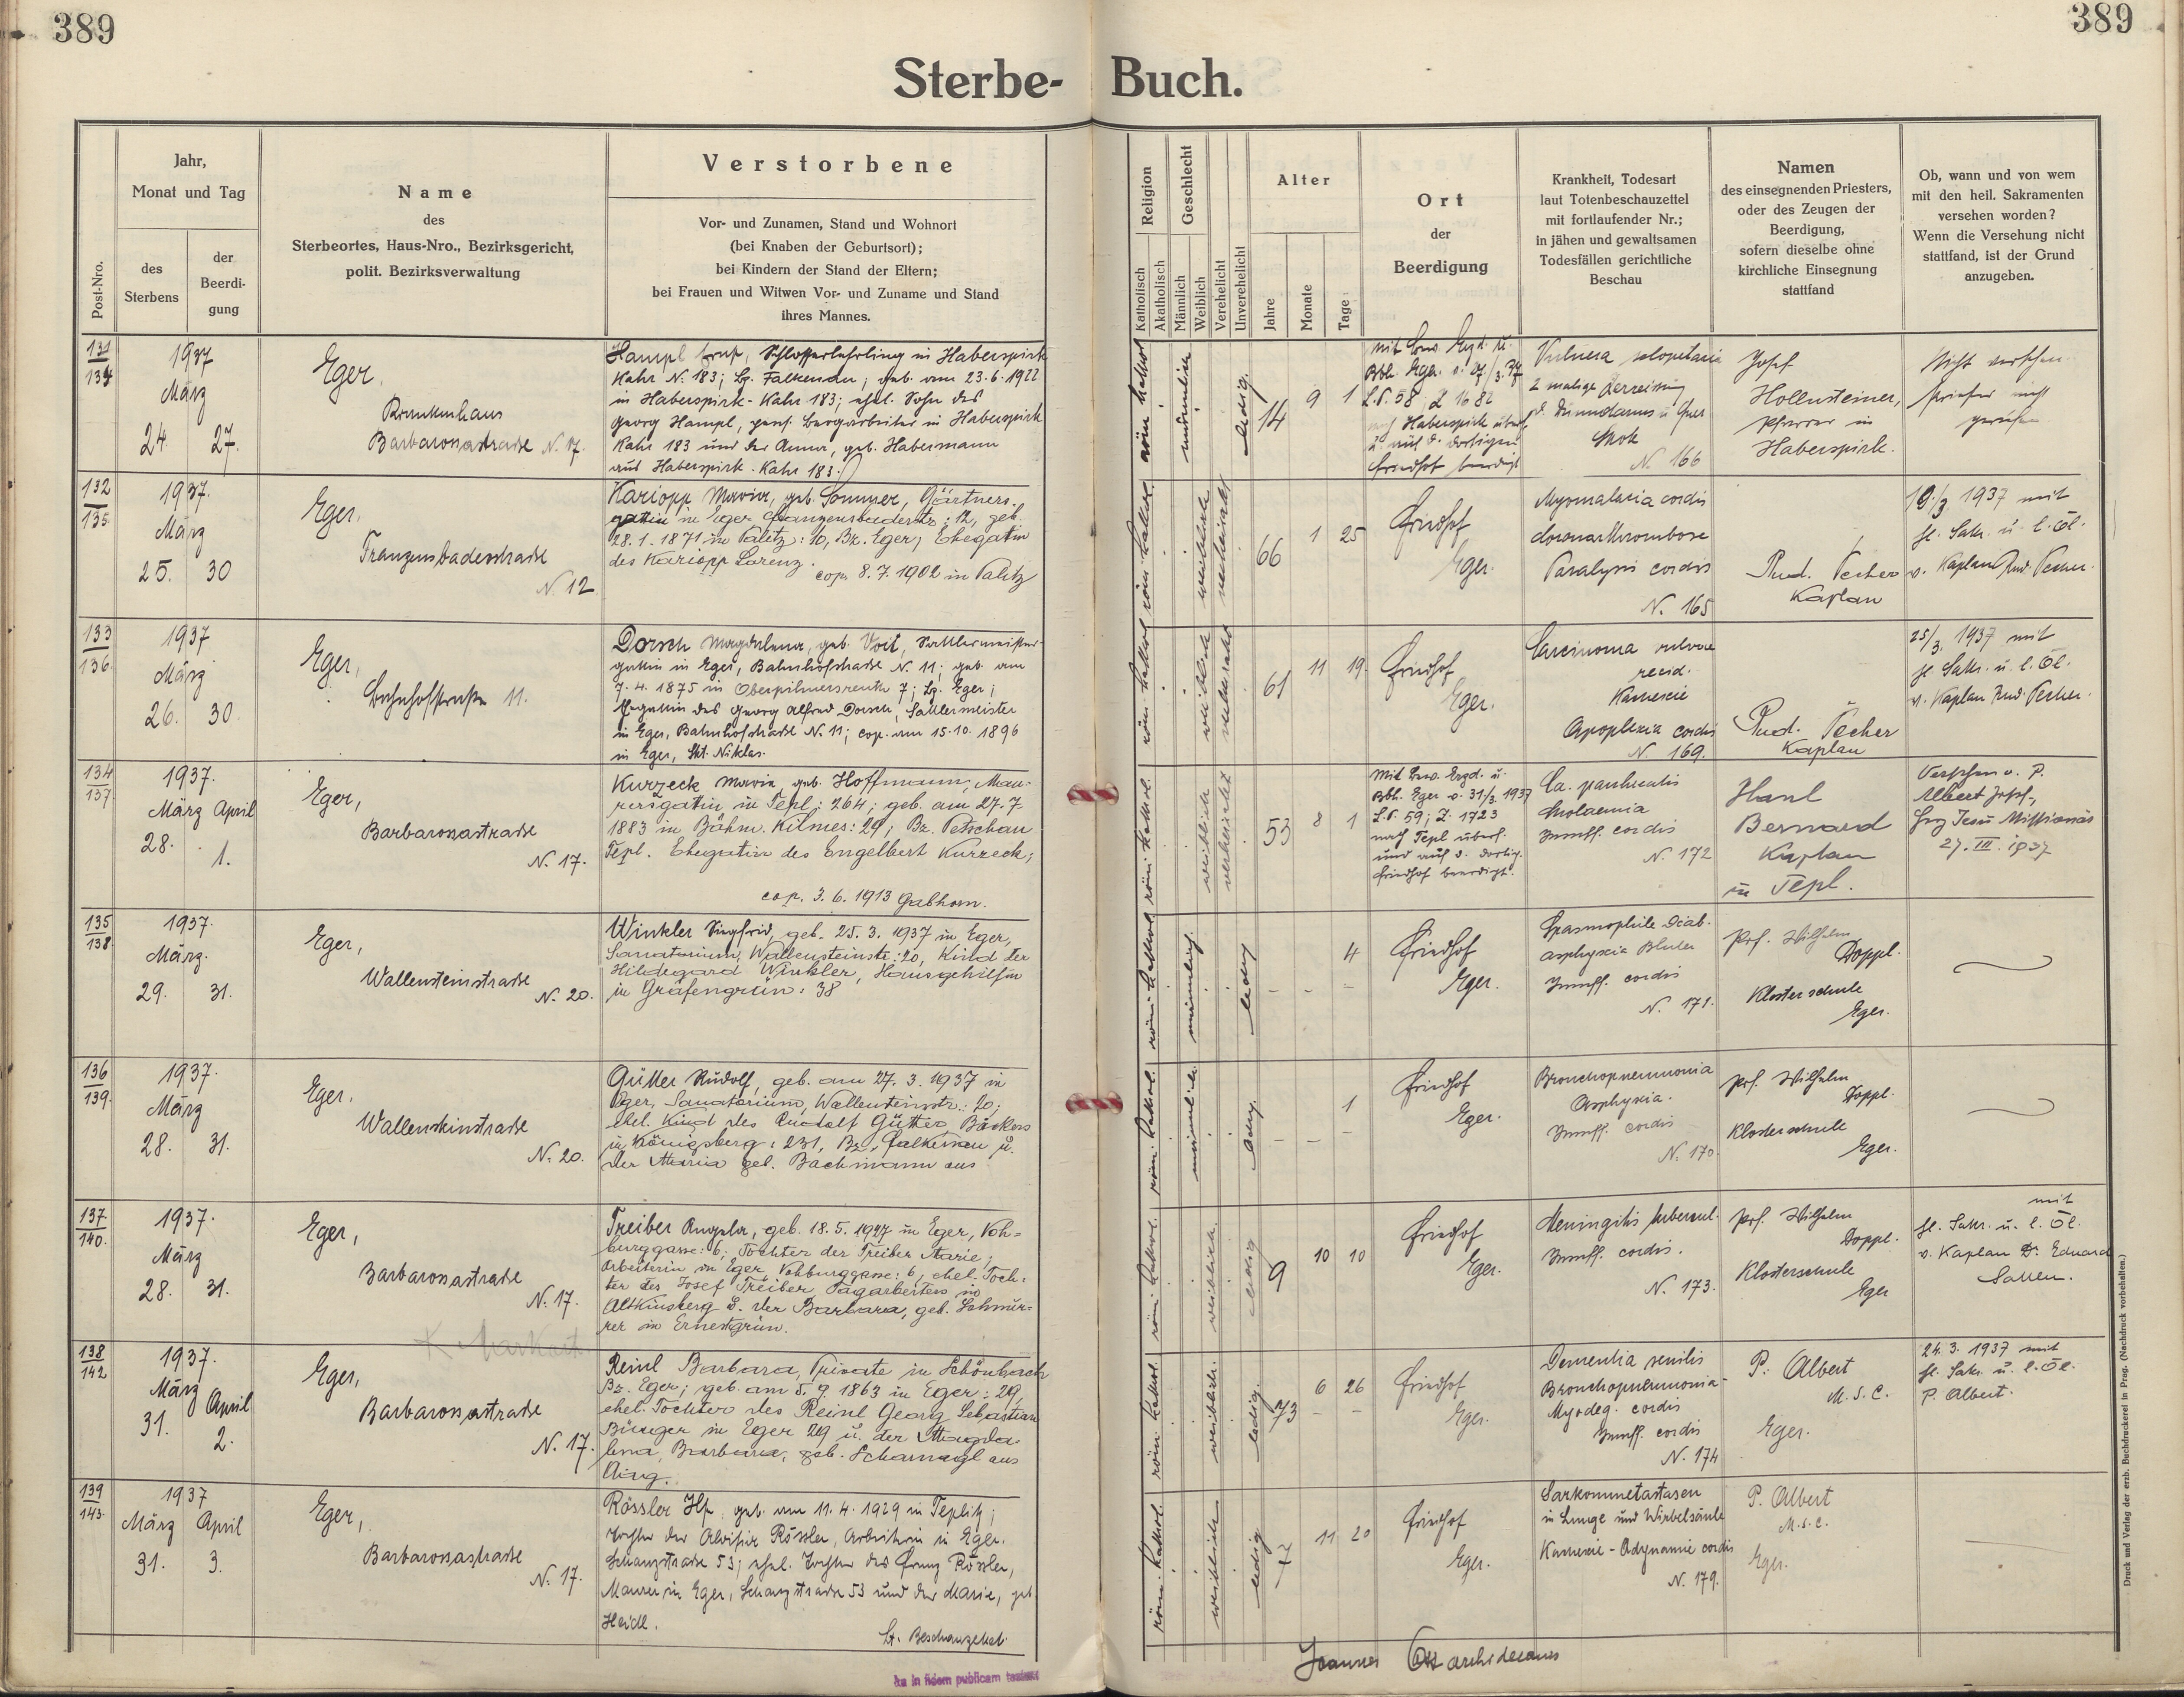 389
389
Sterbe- Buch.
Post-Nro.
Jahr,
Monat und Tag
des
Sterbens
der
Beerdi-
gung
Name
des
Sterbeortes, Haus-Nro., Bezirksgericht,
polit. Bezirksverwaltung
Verstorbene
Vor- und Zunamen, Stand und Wohnort
(bei Knaben der Geburtsort);
bei Kindern der Stand der Eltern;
bei Frauen und Witwen Vor- und Zuname und Stand
ihres Mannes.
Religion
Katholisch
Akatholisch
Geschlecht
Männlich
Weiblich
Verehelicht
Unverehelicht
Alter
Jahre
Monate
Tage
Ort
der
Beerdigung
Krankheit, Todesart
laut Totenbeschauzettel
mit fortlaufender Nr.;
in jähen und gewaltsamen
Todesfällen gerichtliche
Beschau
Namen
des einsegnenden Priesters,
oder des Zeugen der
Beerdigung,
sofern dieselbe ohne
kirchliche Einsegnung
stattfand
Ob, wann und von wem
mit den heil. Sakramenten
versehen worden?
Wenn die Versehung nicht
stattfand, ist der Grund
anzugeben.
131
134
1937
März
24 27.
Eger,
Krankenhaus
Barbarossastrasse N. 17.
Hampl Ernst, Schlosserlehrling in Haberspirk
Kahr N. 183; Bz. Falkenau; geb. am 23.6.1922
in Haberspirk-Kahr 183; ehel. Sohn des
Georg Hampl, pens. Bergarbeiter in Haberspirk
Kahr 183 und der Anna, geb. Habermann
aus Haberspirk-Kahr 183.
röm. kathol.
männlich
ledig.
14 9 1
L.P. 58, Z. 1682
nach Haberspirk überf.
u. auf d. dortigen
Friedhof beerdigt
Vulnera sclopetaria
2 malige Zerreissung
d. Duodenums u. Quer
Shok
N. 166
Josef
Hollensteiner,
Pfarrer in
Haberspirk.
Nicht versehen.
Priester nicht
gerufen
132
135
1937.
März
25. 30
Eger,
Franzensbaderstrasse
N. 12
Kariopp Maria, geb. Sommer, Gärtners-
gattin in Eger Franzensbaderstr.: 12, geb.
28.1.1871 in Palitz: 10, Bz. Eger; Ehegattin
des Kariopp Lorenz.
cop. 8.7.1902 in Palitz
röm. kathol.
weiblich
verheiratet
66 1 25
Friedhof
Eger.
Myomalacia cordis
Coronarthrombose
Paralysis cordis
N. 165
Rud. Pecher
Kaplan
19./3. 1937 mit
hl. Sakr. u. l. Öl.
v. Kaplan Rud. Pecher.
133
136.
1937
März
26. 30
Eger,
Bahnhofstrasse 11.
Dorsch Magdalena, geb. Voit, Sattlermeisters-
gattin in Eger, Bahnhofstrasse N. 11; geb. am
7.4.1875 in Oberpilmersreuth 7; Bz. Eger;
Ehegattin des Georg Alfred Dorsch, Sattlermeister
in Eger, Bahnhofstrasse N. 11; cop. am 15.10.1896
in Eger, Skt. Niklas.
röm. kathol.
weiblich
verheiratet
61 11 19.
Friedhof
Eger.
Carcinoma vulvae
recid.
Kachexie
Apoplexia cordis
N. 169.
Rud. Pecher
Kaplan
25/3. 1937 mit
hl. Sakr. u. l. Öl.
v. Kaplan Rud. Pecher.
134
137
1937.
März April
28. 1.
Eger,
Barbarossastrasse
N. 17.
Kurzeck Maria, geb. Hoffmann, Mau-
rersgattin in Tepl: 264; geb. am 27.7.
1883 in Böhm. Kilmes: 29; Bz. Petschau
Tepl. Ehegattin des Engelbert Kurzeck;
cop. 3.6.1913 Gabhorn.
röm. kathol.
weiblich
verheiratet
53 8 1
Mit Bew. Erzd. u.
Bbh. Eger v. 31/3. 1937
L.P. 59; Z. 1723
nach Tepl überf.
und auf d. dortig.
Friedhof beerdigt.
Ca. pankreatis
Cholaemia
Insuff. cordis
N. 172
Hanl
Bernard
Kaplan
in Tepl.
Versehen v. P.
Albert Josef,
Herz Jesu Missionär
27. III. 1937
135
138
1937.
März.
29. 31.
Eger,
Wallensteinstrasse
N. 20.
Winkler Siegfried, geb. 25.3.1937 in Eger,
Sanatorium, Wallensteinstr.: 20, Kind der
Hildegard Winkler, Hausgehilfin
in Grafengrün: 38
röm. kathol.
männlich.
ledig
- - 4
Friedhof
Eger.
Spasmophile Diab.
Insuff. cordis
N. 171.
Prof. Wilhelm
Doppl.
Klosterschule
Eger.
136
139.
1937.
März
28. 31.
Eger,
Wallensteinstrasse
N. 20.
Gütter Rudolf, geb. am 27.3.1937 in
Eger, Sanatorium, Wallensteinstr.: 20;
ehel. Kind des Rudolf Gütter, Bäckers
in Königsberg: 231, Bz. Falkenau u.
der Maria geb. Bachmann aus
röm. kathol.
männlich.
ledig.
- - 1
Friedhof
Eger.
Bronchopneumonia
Asphyxia.
Insuff. cordis
N. 170.
Prof. Wilhelm
Doppl.
Klosterschule
Eger.
137
140.
1937.
März
28. 31.
Eger,
Barbarossastrasse
N. 17.
Treiber Angela, geb. 18.5.1927 in Eger, Voh-
burggasse: 6; Tochter der Treiber Marie;
Arbeiterin in Eger, Vohburggasse: 6, ehel. Toch-
ter des Josef Treiber Tagarbeiters in
Altkinsberg u. der Barbara, geb. Schnür-
rer in Ernestgrün.
röm. kathol.
weiblich.
ledig
9 10 10
Friedhof
Eger.
Meningitis tubercul.
Insuff. cordis.
N. 173.
Prof. Wilhelm
Doppl.
Klosterschule
Eger
mit
hl. Sakr. u. l. Öl.
v. Kaplan Dr. Eduard
138
142
1937.
März April
31. 2.
Eger,
Barbarossastrasse
N. 17.
Reinl Barbara, Private in Schönbach
Bz. Eger; geb. am 5.9.1863 in Eger: 29,
ehel. Tochter des Reinl Georg Sebastian
Bürger in Eger 29 u. der Magda-
lena, Barbara, geb. Scharnagl aus
röm. kathol.
weiblich.
ledig.
73 6 26
Friedhof
Eger.
Dementia senilis
Bronchopneumonia-
Myodeg. cordis
Insuff. cordis
N. 174
P. Albert
M.S.C.
Eger.
24.3.1937 mit
hl. Sakr. u. l. Öl.
P. Albert.
139
143.
1937
März April
31. 3.
Eger,
Barbarossastrasse
N. 17.
Rössler Ilse, geb. am 11.4.1929 in Teplitz;
Tochter der Aloisia Rössler, Arbeiterin in Eger.
Schanzstrasse 53; ehel. Tochter des Franz Rössler,
Maurer in Eger, Schanzstrasse 53 und der Marie, geb.
Heidl.
Lt. Beschauzettel.
röm. kathol.
weiblich
ledig
7 11 20
Friedhof
Eger.
Sarkommetastasen
in Lunge und Wirbelsäule
Kachexie - Adynamie cordis
N. 179.
P. Albert
M.S.C.
Eger.
Joannes Ott archidecanus
in fidem publicam
Druck und Verlag der erzb. Buchdruckerei in Prag. (Nachdruck vorbehalten.)